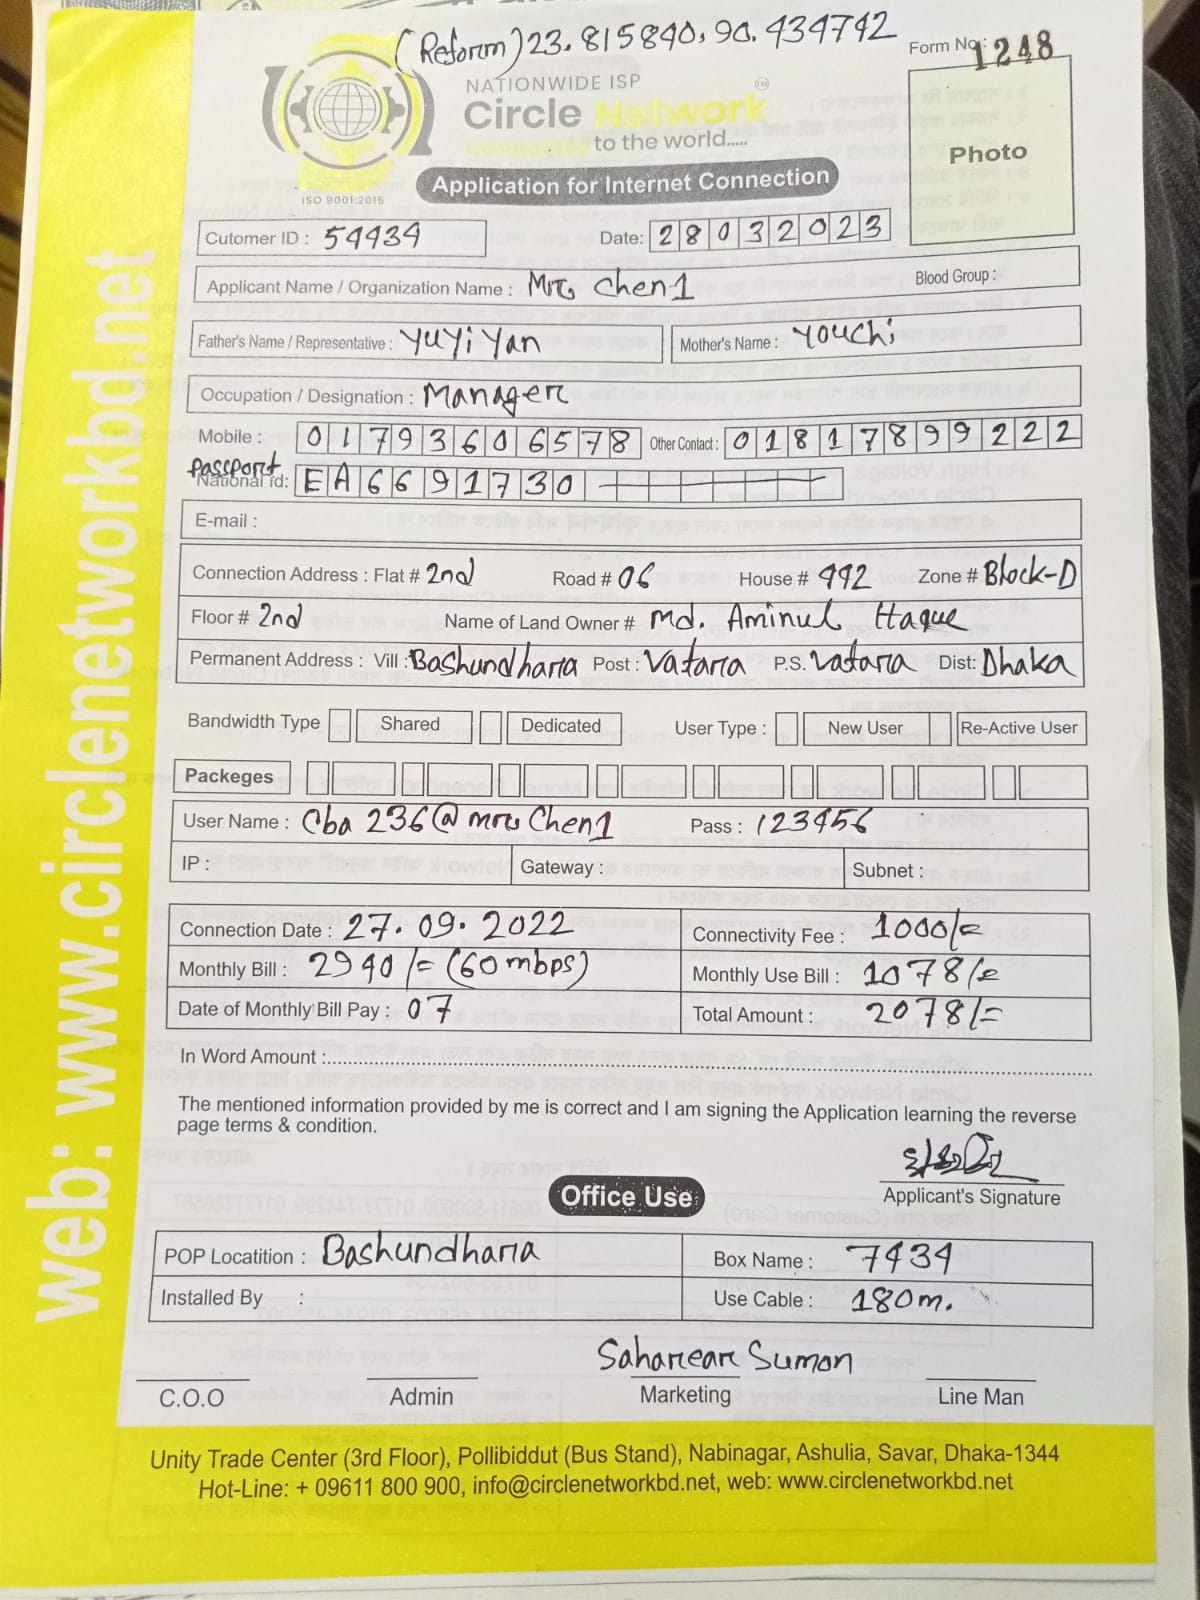 (Reform) 23.815840, 90.434742
Form No: 1248
NATIONWIDE ISP
Circle Network
to the world.....
ISO 9001:2015
Photo
Application for Internet Connection
Cutomer ID : 54434 Date: 28032023
Applicant Name / Organization Name : Mr. Chen1 Blood Group :
Father's Name / Representative : YuYi Yan Mother's Name : Youchi
Occupation / Designation : Manager
Mobile : 01793606578 Other Contact : 01817899222
Passport
National id: EA6691730
E-mail :
Connection Address : Flat # 2nd Road # 06 House # 992 Zone # Block-D
Floor # 2nd Name of Land Owner # Md. Aminul Haque
Permanent Address : Vill : Bashundhara Post : Vatara P.S. Vatara Dist: Dhaka
Bandwidth Type Shared Dedicated User Type : New User Re-Active User
Packeges
User Name : Cba 236@mr. Chen1 Pass : 123456
IP : Gateway : Subnet :
Connection Date : 27.09.2022 Connectivity Fee : 1000/=
Monthly Bill : 2940/= (60mbps) Monthly Use Bill : 1078/=
Date of Monthly Bill Pay : 07 Total Amount : 2078/=
In Word Amount :..........
The mentioned information provided by me is correct and I am signing the Application learning the reverse
page terms & condition.
Applicant's Signature
Office Use
POP Locatition : Bashundhara Box Name : 7434
Installed By : Use Cable : 180m.
Saharear Sumon
C.O.O Admin Marketing Line Man
Unity Trade Center (3rd Floor), Pollibiddut (Bus Stand), Nabinagar, Ashulia, Savar, Dhaka-1344
Hot-Line: + 09611 800 900, info@circlenetworkbd.net, web: www.circlenetworkbd.net
web: www.circlenetworkbd.net